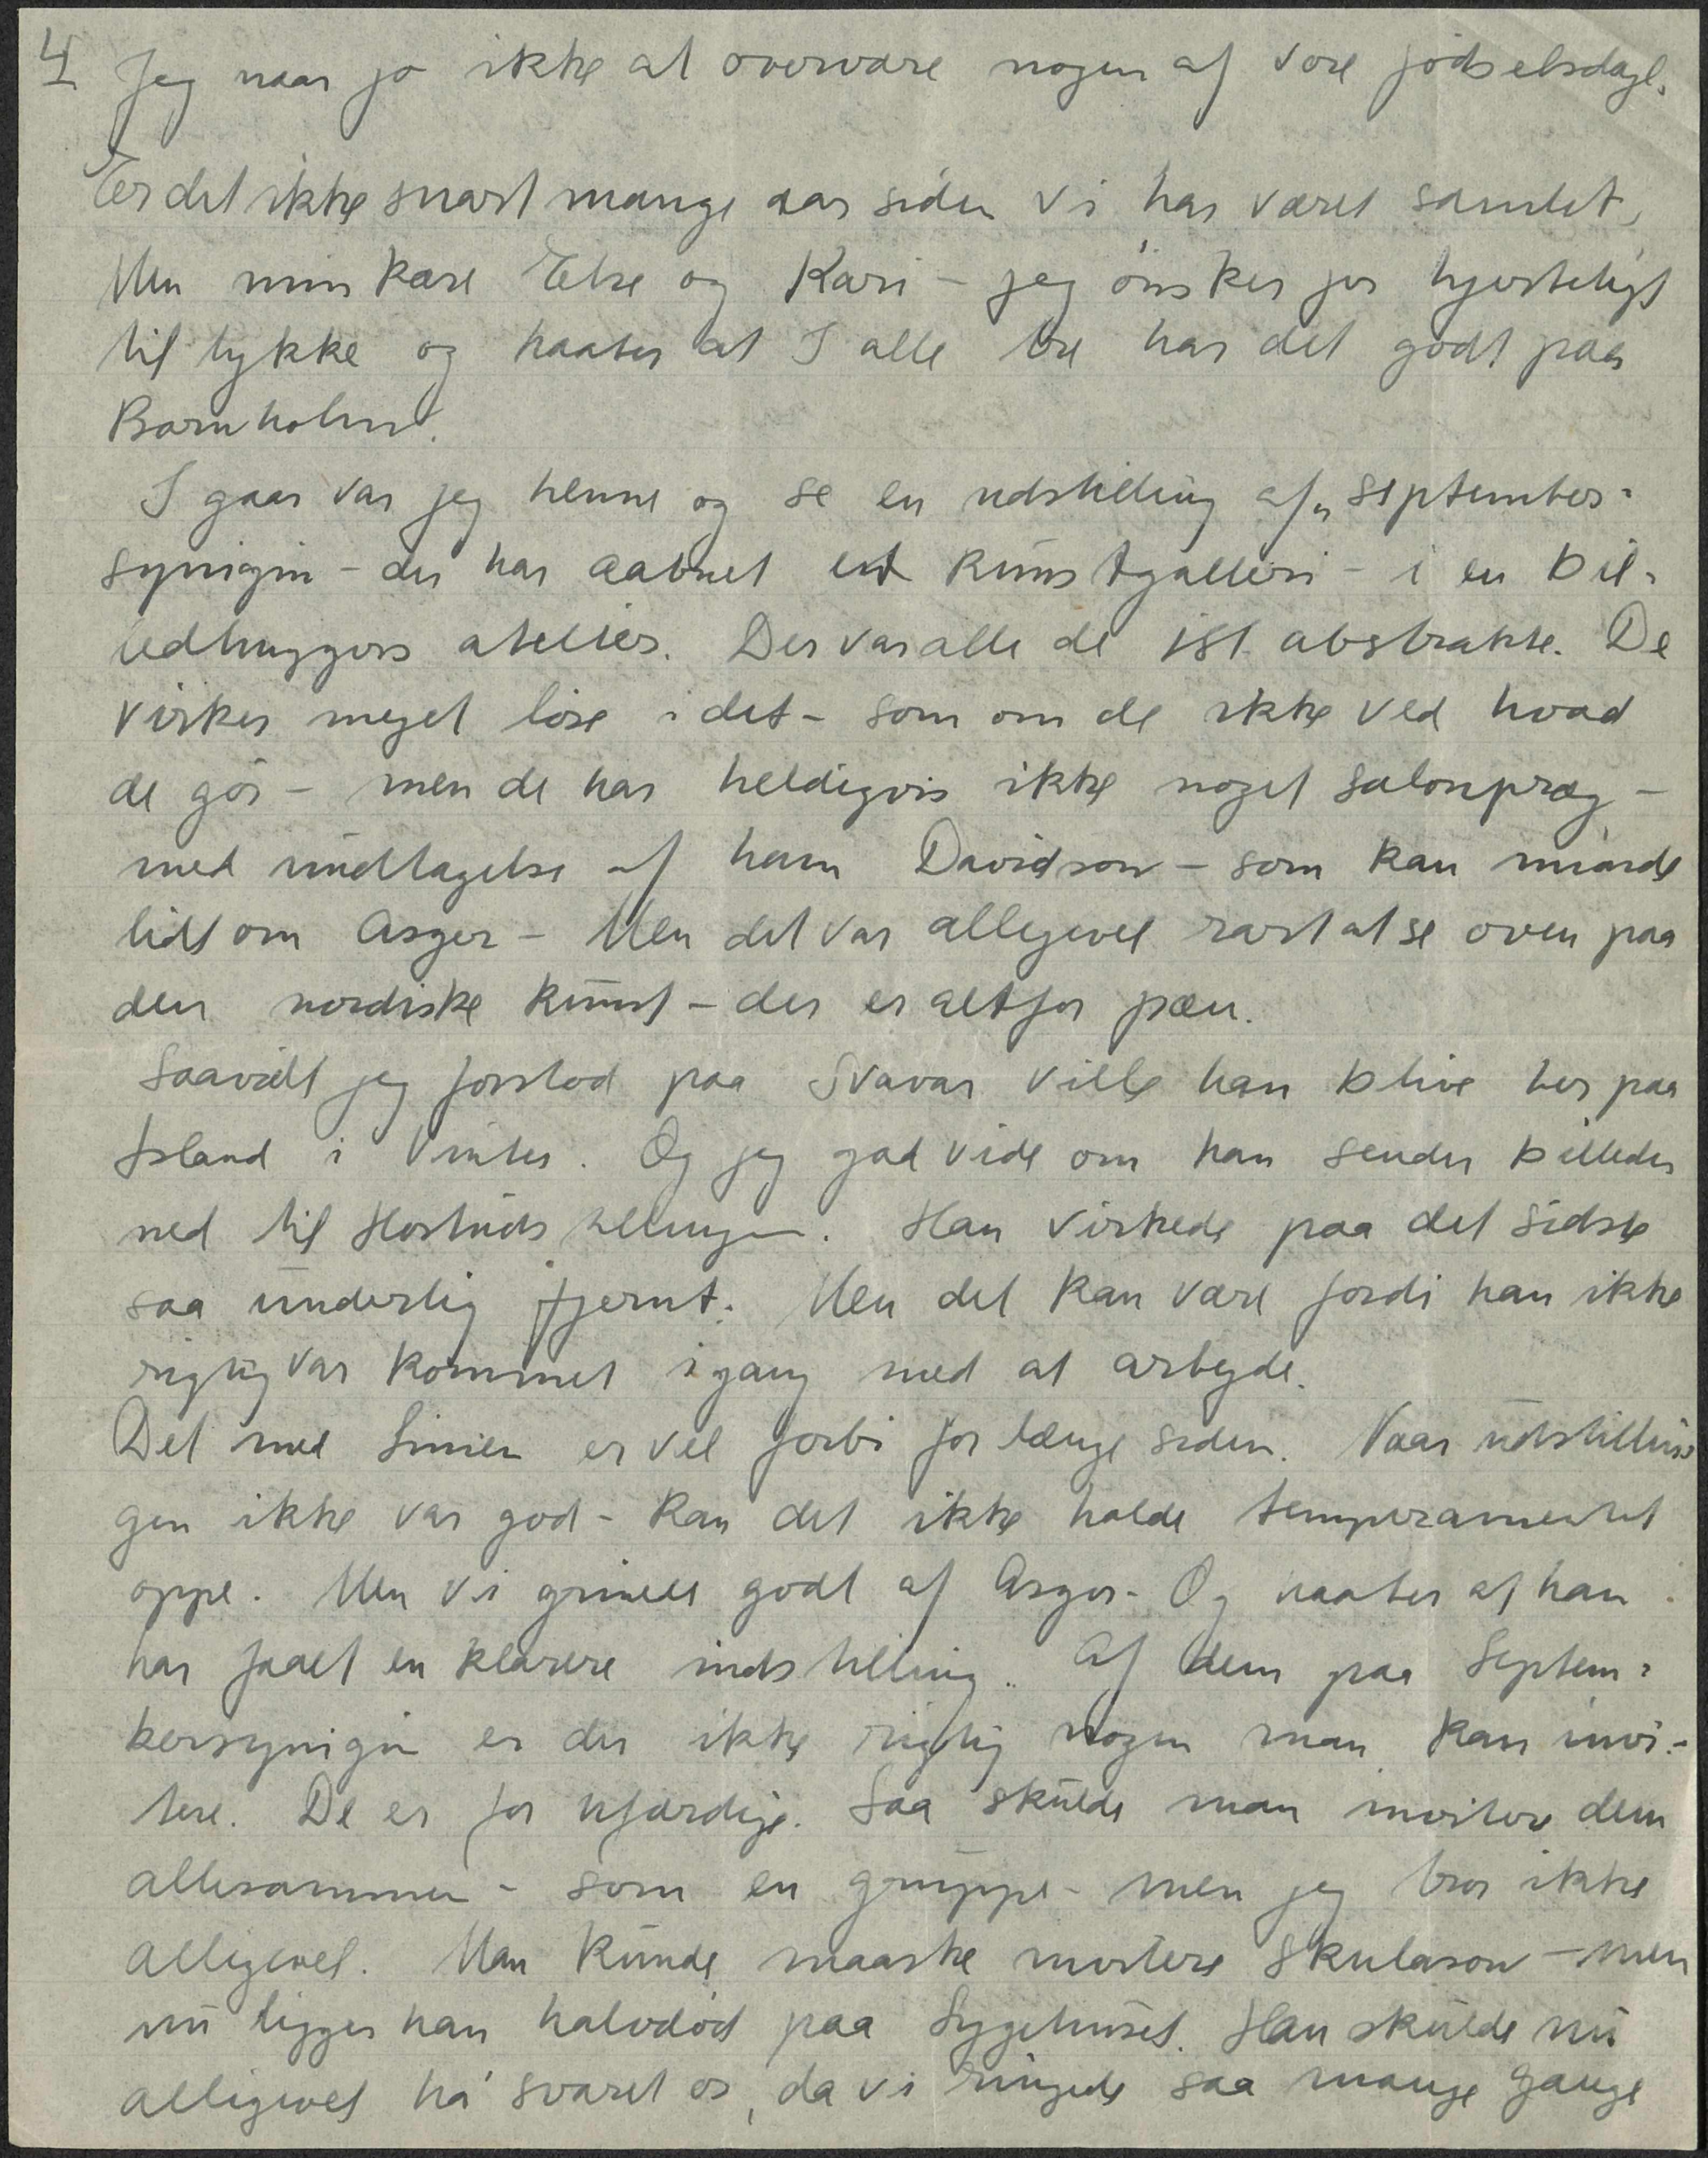 4 Jeg naar jo ikke at overvære nogen af vore födselsdage.
Er det ikke snart mange aar siden vi har været samlet,
Men min kære Else og Kari - jeg önsker jer hjerteligt
til lykke og haaber at I alle tre har det godt paa
Bornholm.
I gaar var jeg henne og se en udstilling af „september-
synigin - der har aabnet et kunstgalleri - i en bil-
ledhuggers atelier. Der var alle de isl. abstrakte. De
virker meget löse i det - som om de ikke ved hvad
de gör - men de har heldigvis ikke noget salonpræg -
med undtagelse af ham Davidson - som kan minde
lidt om Asger - Men det var alligevel rart at se oven paa
den nordiske kunst - der er altfor pæn.
Saavidt jeg forstod paa Svavar ville han blive her paa
Island i Vinter. Og jeg gad vide om han sender billeder
ned til Høstudstillingen. Han virkede paa det sidste
saa underlig fjernt. Men det kan være fordi han ikke
rigtig var kommet igang med at arbejde.
Det med Linien er vel forbi for længe siden. Naar udstillin-
gen ikke var god - kan det ikke holde temperamentet
oppe. Men vi grinede godt af Asger - Og haaber at han
har faaet en klarere indstilling. Af dem paa Septem-
bersynigin er der ikke rigtig nogen man kan invi-
tere. De er for ufærdige. Saa skulde man invitere dem
allesammen - som en gruppe - men jeg tror ikke
alligevel. Man kunde maaske invitere Skulason - men
nu ligger han halvdöd paa Sygehuset. Han skulde nu
alligevel ha' svaret os, da vi ringede saa mange gange